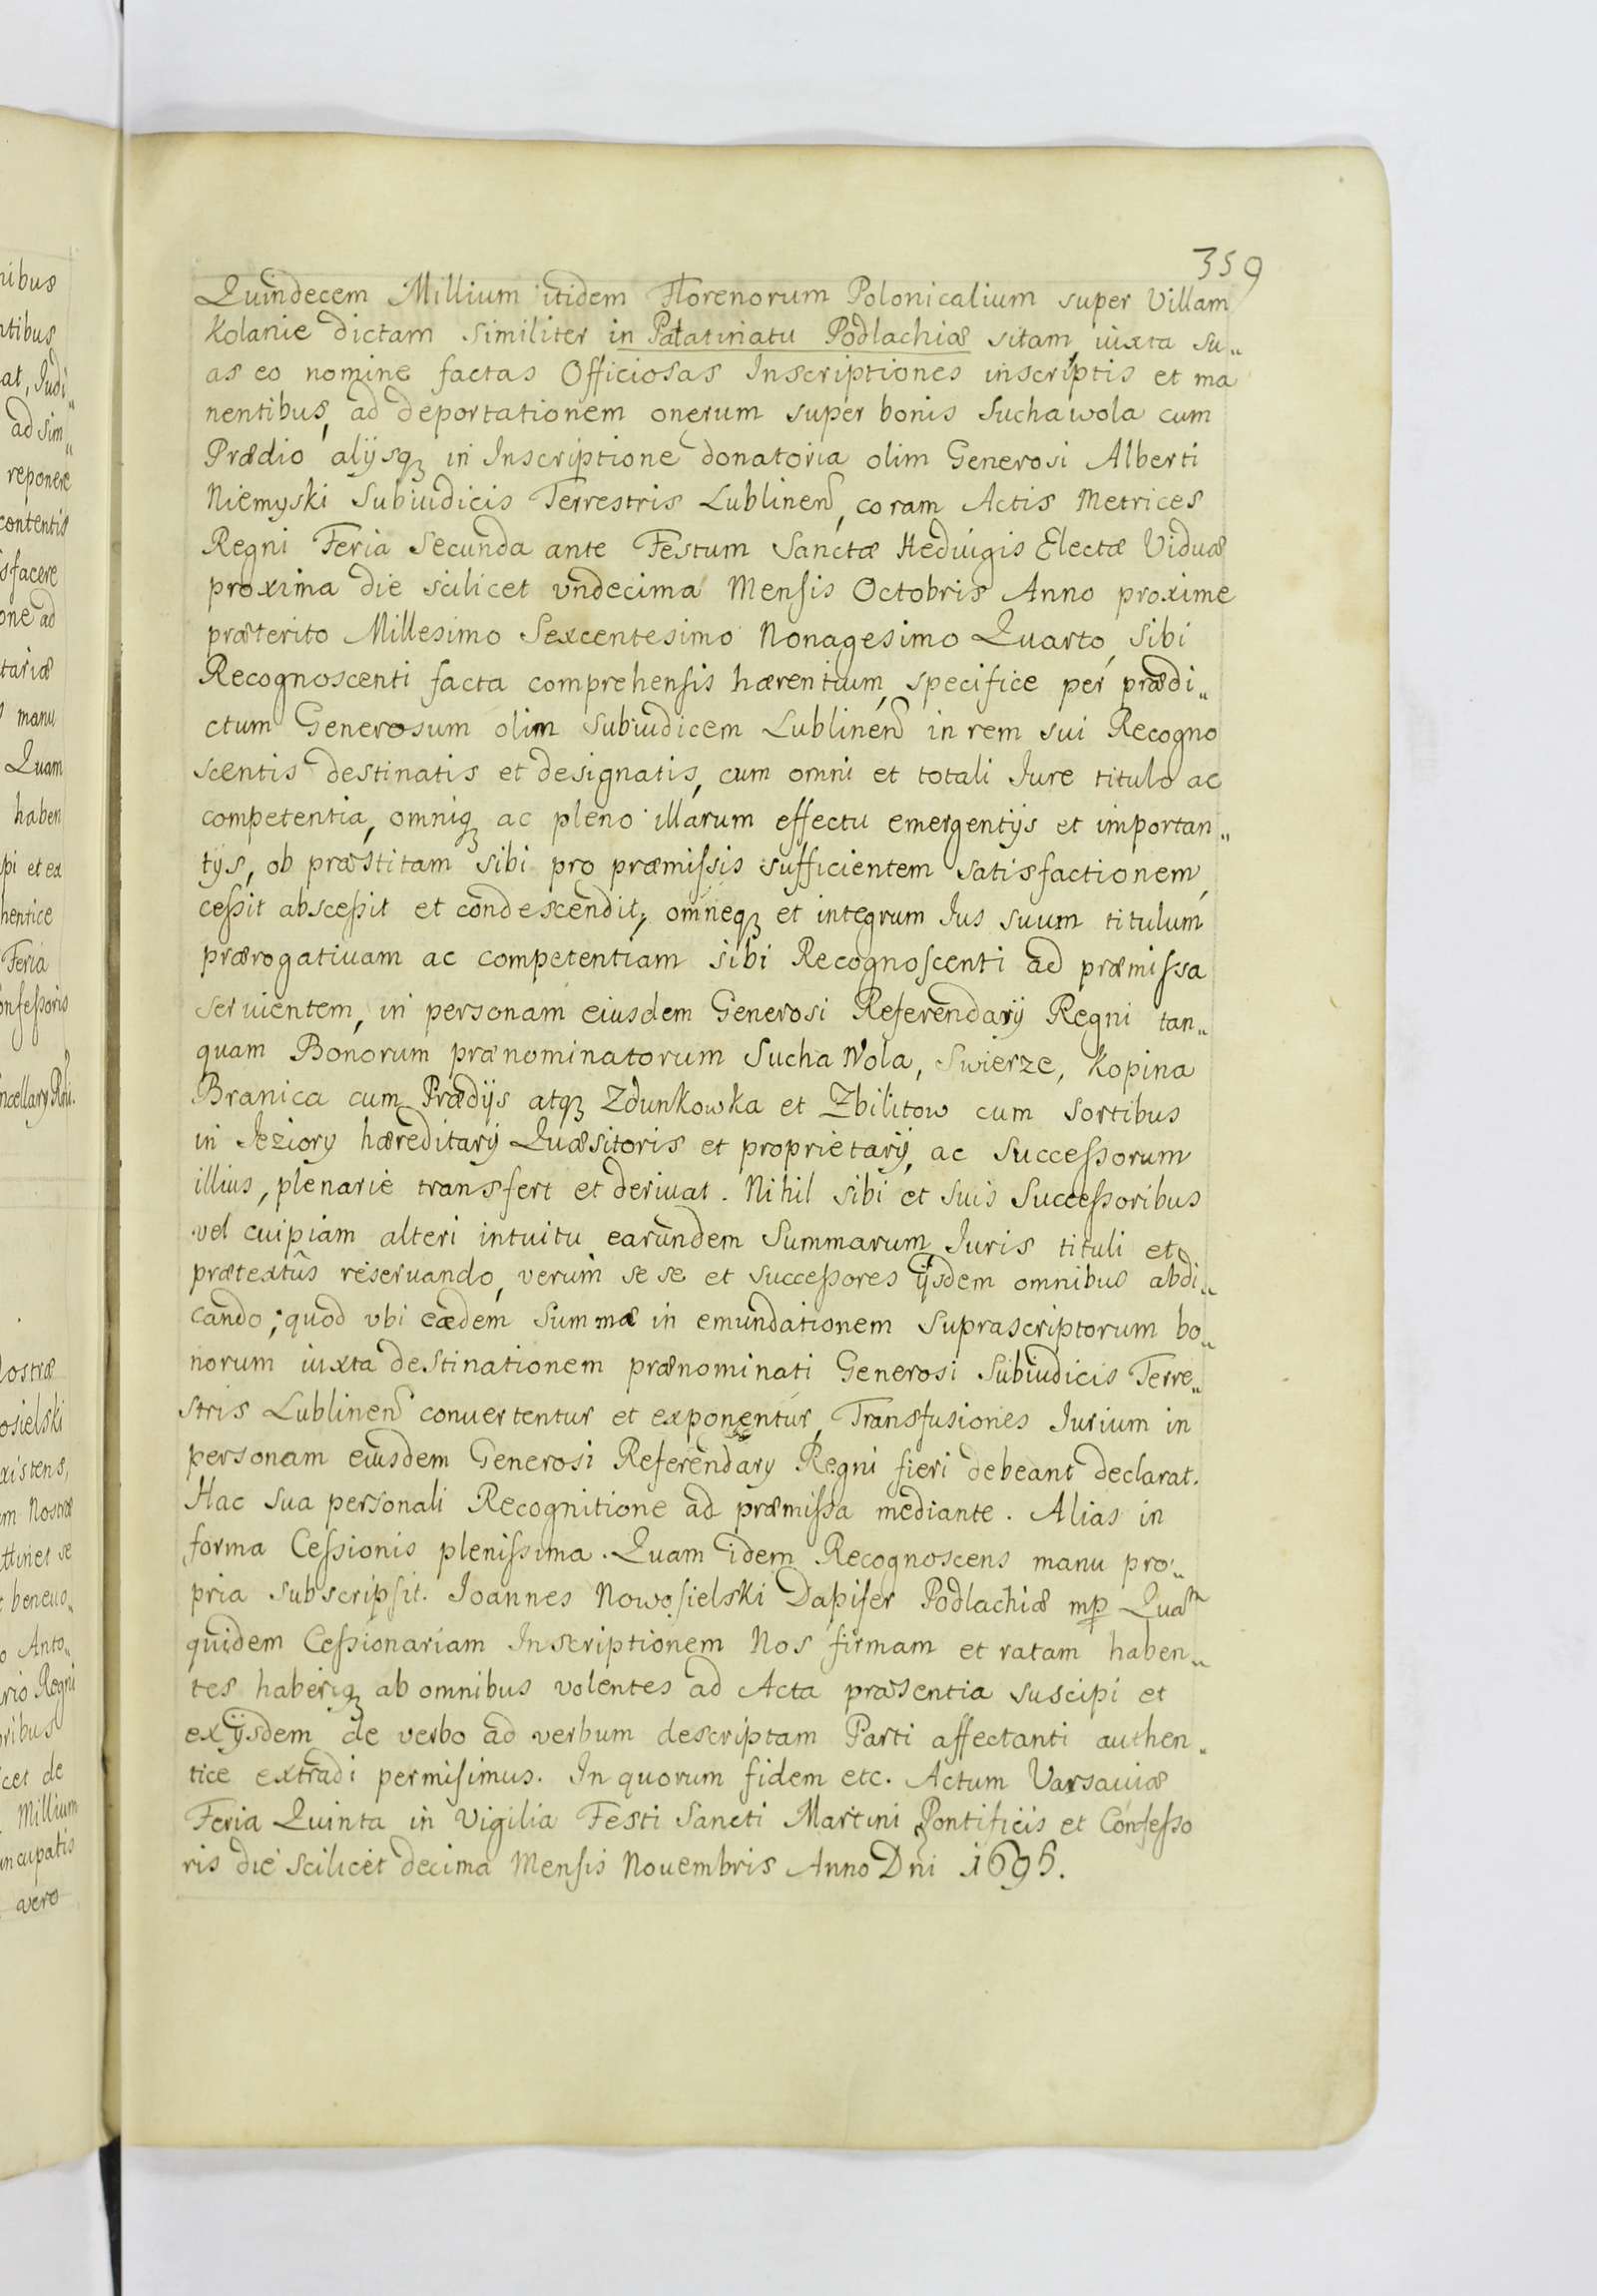 359
Quindecem Millium itidem Florenorum Polonicalium super Villam
Kolanie dictam similiter in Palatinatu Podlachiæ sitam, iuxta su„
as eo nomine factas Officiosas Inscriptiones inscriptis et ma
nentibus, ad deportationem onerum super bonis Suchawola cum
Prædio alijsqȝ in Inscriptione donatoria olim Generosi Alberti
Niemyski Subiudicis Terrestris Lublinen̄, coram Actis Metrices
Regni Feria Secunda ante Festum Sanctæ Heduigis Electæ Viduæ
proxima die scilicet vndecima Mensis Octobris Anno proxime
præterito Millesimo Sexcentesimo Nonagesimo Quarto, sibi
Recognoscenti facta comprehensis hærentium, specifice per prædi„
ctum Generosum olim Subiudicem Lublinen̄ in rem sui Recogno
scentis destinatis et designatis, cum omni et totali Iure titulo ac
competentia, omniqȝ ac pleno illarum effectu emergentijs et importan„
tijs, ob præstitam sibi pro præmissis sufficientem satisfactionem,
cessit abscessit et condescendit, omneqȝ et integrum Ius suum titulum
prærogatiuam ac competentiam sibi Recognoscenti ad præmissa
seruientem, in personam eiusdem Generosi Referendarij Regni tan„
quam Bonorum prænominatorum Sucha Wola, Swierze, Kopina
Branica cum Prædijs atqȝ Zdunkowka et Zbilitow cum sortibus
in Jeziory hæreditarij Quæsitoris et proprietarij, ac Successorum
illius, plenarie transfert et deriuat. Nihil sibi et suis Successoribus
vel cuipiam alteri intuitu earundem Summarum, Iuris tituli et
prætextûs reseruando, verum se se et successores ijsdem omnibus abdi„
cando; quod vbi eædem Summæ in emundationem suprascriptorum bo„
norum iuxta destinationem prænominati Generosi Subiudicis Terre„
stris Lublinen̄ conuertentur et exponentur, Transfusiones Iurium in
personam eiusdem Generosi Referendarij Regni fieri debeant declarat.
Hac sua personali Recognitione ad præmissa mediante. Alias in
forma Cessionis plenissima. Quam idem Recognoscens manu pro„
pria subscripsit. Ioannes Nowosielski Dapifer Podlachiæ mp̄ Quam
quidem Cessionariam Inscriptionem Nos firmam et ratam haben„
tes haberiqȝ ab omnibus volentes ad Acta præsentia suscipi et
ex ijsdem de verbo ad verbum descriptam Parti affectanti authen„
tice extradi permisimus. In quorum fidem etc. Actum Varsauiæ
Feria Quinta in Vigilia Festi Sancti Martini Pontificis et Confesso
ris die scilicet decima Mensis Nouembris Anno Dni 1695.